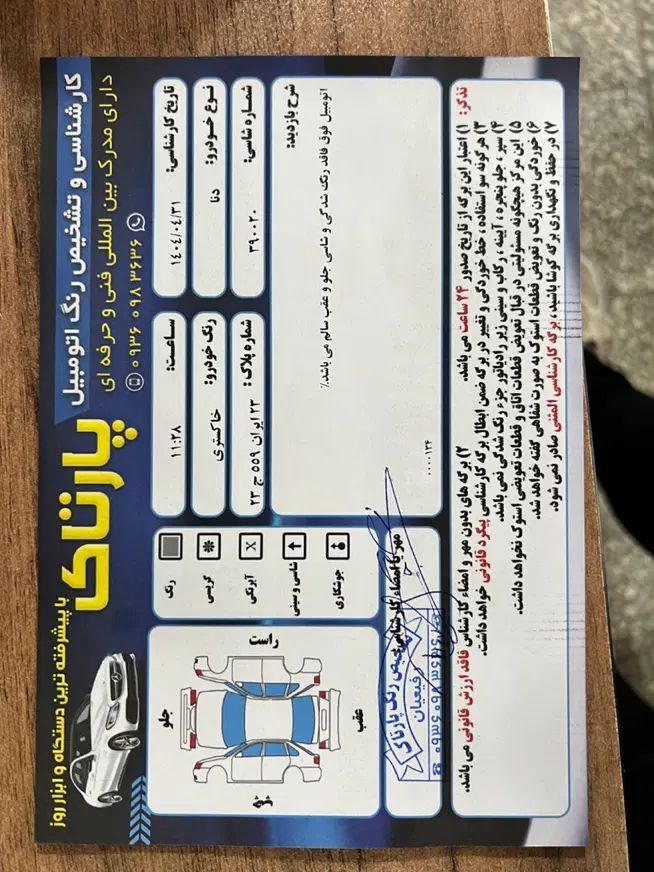 کارشناسی و تشخیص رنگ اتومبیل
دارای مدرک بین المللی فنی و حرفه ای
۰۹۳۶ ۰۹۸ ۳۶۳۶
پارتاک
با پیشرفته ترین دستگاه و ابزار روز
تاریخ کارشناسی: ۱۴۰۴/۰۴/۳۱
ساعت: ۱۱:۲۸
نوع خودرو: دنا
رنگ خودرو: خاکستری
شماره شاسی: ۳۹۰۰۲۰
شماره پلاک: ۲۳ ایران ۵۵۹ ج ۲۳
شرح بازدید:
اتومبیل فوق فاقد رنگ شدگی و شاسی جلو و عقب سالم می باشد./
۰۰۰۰۱۳۴
رنگ
گریسی
X آبرنگی
شاسی و سینی
جوشکاری
جلو
راست
عقب
مهر یا امضاء کارشناس:
تشخیص رنگ پارتاک
رفیعیان
۰۹۳۶۰۹۸۳۶۳۶
تذکر: ۱) اعتبار این برگه از تاریخ صدور ۲۴ ساعت می باشد. ۲) برگه های بدون مهر و امضاء کارشناس فاقد ارزش قانونی می باشد.
۳) هرگونه سو استفاده، خط خوردگی و تغییر در برگه ضمن ابطال برگه کارشناسی پیگرد قانونی خواهد داشت.
۴) سپر، جلو پنجره، آیینه، رکاب و سینی زیر رادیاتور جزء رنگ شدگی نمی باشد.
۵) این مرکز هیچگونه مسئولیتی در قبال تعویض قطعات اتاق و قطعات تعویضی استوک نخواهد داشت.
۶) خوردگی بدون رنگ و تعویض قطعات استوک به صورت شفاهی گفته خواهد شد.
۷) در حفظ و نگهداری برگه کوشا باشید، برگه کارشناسی المثنی صادر نمی شود.